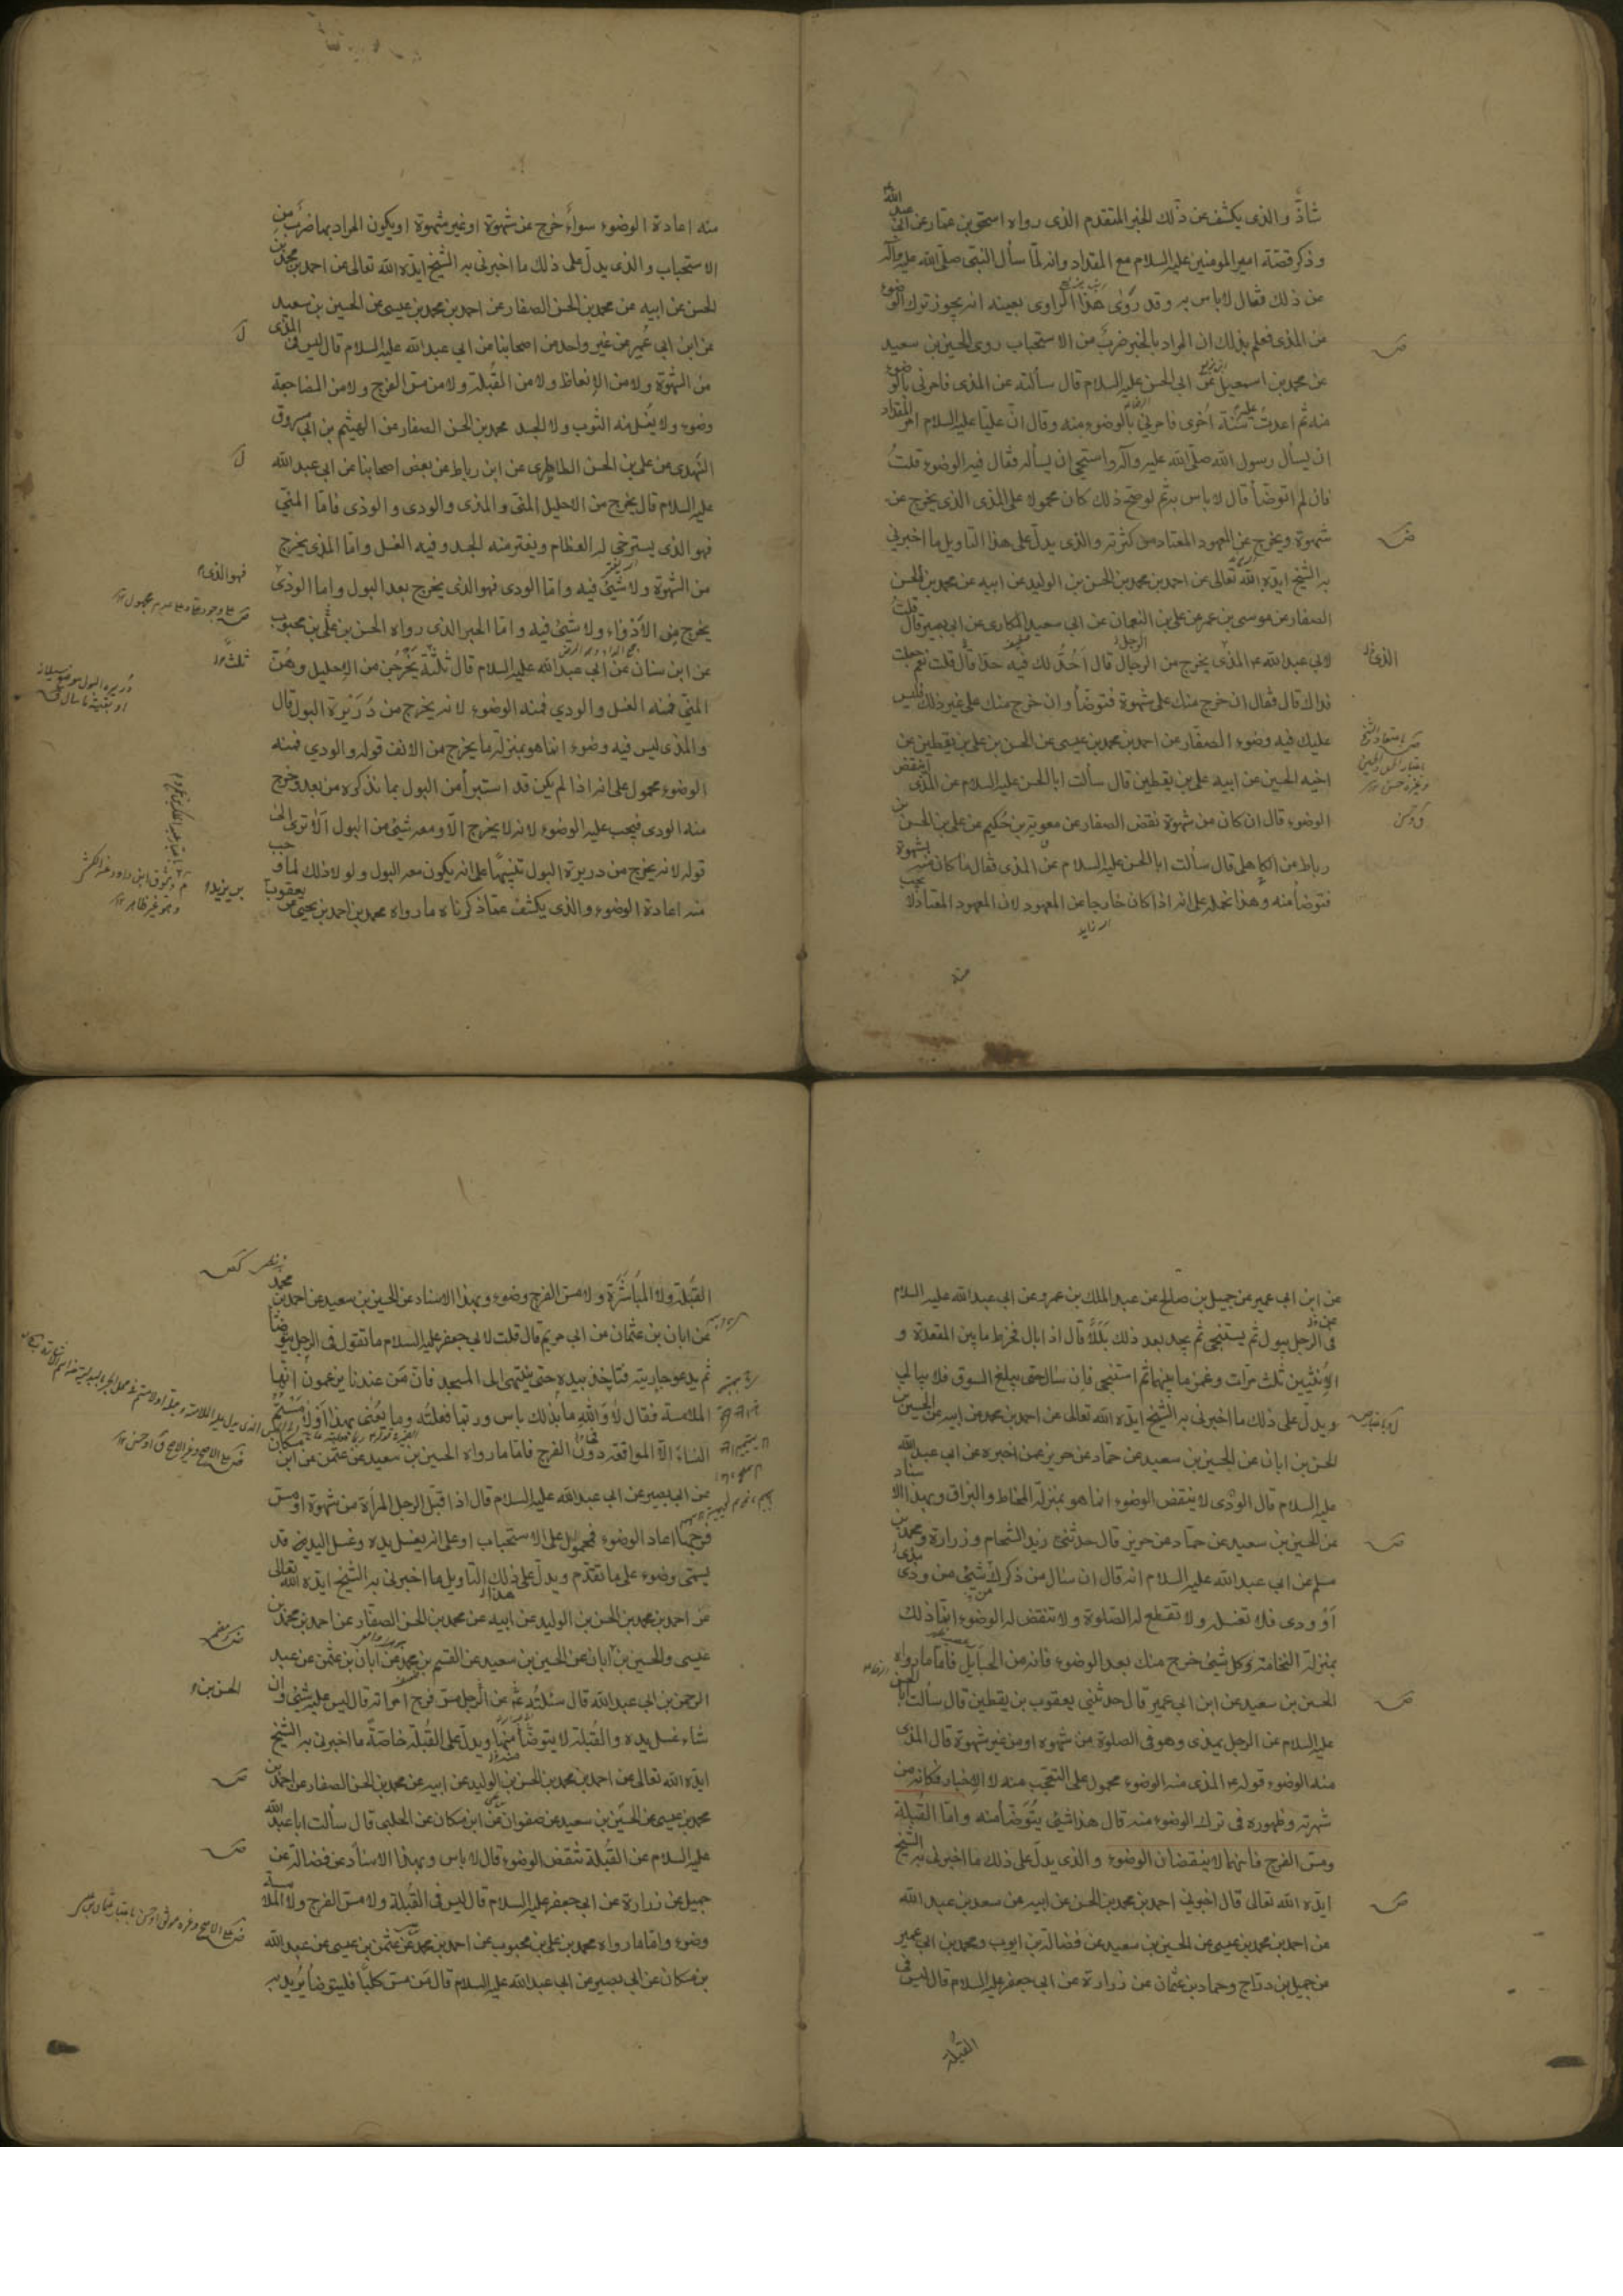 شاذّ والذى يكشف عن ذلك الخبر المتقدم الذى رواه اسحق بن عمّار عن ابى عبد الله
وذكر قصّة امير المومنين عليه السلام مع المقداد وانه لمّا سأل النبى صلّى الله عليه وآله
عن ذلك فقال لا باس به وقد رَوٰى هَذا الراوى بعينه انه يجوز ترك الوضوء
من المذى فعلم بذلك ان المراد بالخبر ضربٌ من الاستحباب روى الحسين بن سعيد
عن محمد بن اسمعيل عن ابى الحسن عليه السلام قال سألته عن المذى فامرنى بالوضوء
منه ثم اعدتُ عليه سنة اُخرى فامرنى بالوضوء منه وقال انّ عليّا عليه السلام امر المقداد
ان يسأل رسول الله صلّى الله عليه وآله واستحيى ان يسأله فقال فيه الوضوء قلتُ
فان لم اتوضّأ قال لا باس به ثم لو صحّ ذلك كان محمولا على المذى الذى يخرج عن
شهوة ويخرج عن المعهود المعتاد من كثرته والذى يدلّ على هذا التاويل ما اخبرنى
به الشيخ ايّده الله تعالى عن احمد بن محمد بن الحسن بن الوليد عن ابيه عن محمد بن الحسن
الصفار عن موسى بن عمر عن على بن النعمان عن ابى سعيد المكارى عن ابى بصير قال قلتُ
لابى عبد الله ع المذى يخرج من الرجال قال اَحُدُّ لك فيه حدّا قال قلت نعم جعلت
فداك قال فقال ان خرج منك على شهوة فتوضّأ وان خرج منك على غير ذلك فليس
عليك فيه وضوء الصفار عن احمد بن محمد بن عيسى عن الحسن بن على بن يقطين عن
اخيه الحسين عن ابيه على بن يقطين قال سألت ابا الحسن عليه السلام عن المذى اينقض
الوضوء قال ان كان من شهوة نقض الصفار عن معوية بن حُكيم عن على بن الحسن بن
رباط عن الكاهلى قال سألت ابا الحسن عليه السلام عن المذى فقال ما كان منه بشهوة
فتوضأ منه وهذا نحمله على انه اذا كان خارجا عن المعهود لان المعهود المعتاد لا يجب
منه اعادة الوضوء سواءً خرج عن شهوة او غير شهوة او يكون المراد بها ضربٌ من
الاستحباب والذى يدلّ على ذلك ما اخبرنى به الشيخ ايّده الله تعالى عن احمد بن محمد بن
الحسن عن ابيه عن محمد بن الحسن الصفار عن احمد بن محمد بن عيسى عن الحسين بن سعيد
عن ابن ابى عُمير عن غير واحد من اصحابنا عن ابى عبد الله عليه السلام قال ليس فى المذى
من الشهوة ولا من الإنعاظ ولا من القُبلة ولا من مسّ الفرج ولا من المضاجعة
وضوء ولا يُغسل منه الثوب ولا الجسد محمد بن الحسن الصفار عن الهيثم بن ابى مسروق
النهدى عن على بن الحسن الطاطرى عن ابن رباط عن بعض اصحابنا عن ابى عبد الله
عليه السلام قال يخرج من الاحليل المنى والمذى والودى والوذى فامّا المنّى
فهو الذى يسترخى له العظام ويفتر منه الجسد وفيه الغسل وامّا المذى يخرج
من الشهوة ولا شيئ فيه وامّا الودى فهو الذى يخرج بعد البول واما الوذى
يخرج من الأَدْواء ولا شيئ فيه وامّا الخبر الذى رواه الحسن بن على بن محبوب
عن ابن سنان عن ابى عبد الله عليه السلام قال ثلثةٌ يَخْرجُن من الاحليل وهُنّ
المنى فمنه الغسل والودي فمنه الوضوء لانه يخرج من دُرَيْرة البول قال
والمذى ليس فيه وضوء انما هو بمنزلة ما يخرج من الانف قوله والودي فمنه
الوضوء محمول على انه اذا لم يكن قد استبرأ من البول بما نذكره من بعد وخرج
منه الودى فيجب عليه الوضوء لانه لا يخرج الّا ومعه شيئ من البول اَلَا ترى الى
قوله لانه يخرج من دريرة البول تنبيهًا على انه يكون معه البول ولولا ذلك لما وجب
منه اعادة الوضوء والذى يكشف عمّا ذكرناه ما رواه محمد بن احمد بن يحيى عن يعقوب
بن يزيد
عن ابن ابى عمير عن جميل بن صالح عن عبد الملك بن عمرو عن ابى عبد الله عليه السلام
فى الرجل يبول ثم يستنجى ثم يجد بعد ذلك بَلَلًا قال اذا بال فخرط ما بين المقعدة و
الاُنثيين ثلث مرات وغمز ما بينهما ثم استنجى فاِن سال حتى يبلغ السوق فلا يبالي
ويدلّ على ذلك ما اخبرنى به الشيخ ايّده الله تعالى عن احمد بن محمد عن ابيه عن الحسين بن
الحسن بن ابان عن الحسين بن سعيد عن حمّاد عن حريز عمن اخبره عن ابى عبد الله
عليه السلام قال الودى لا ينقض الوضوء انما هو بمنزلة المخاط والبزاق وبهذا الاسناد
عن الحسين بن سعيد عن حمّاد عن حريز قال حدثنى زيد الشحام وزرارة ومحمد بن
مسلم عن ابى عبد الله عليه السلام انه قال ان سال من ذكرك شيئ من مذى
اَوْ ودى فلا تغسله ولا تقطع له الصلوة ولا تنقض له الوضوء انّما ذلك
بمنزلة النخامة وكل شيئ خرج منك بعد الوضوء فانه من الحبايل فامّا ما رواه
الحسين بن سعيد عن ابن ابى عمير قال حدثنى يعقوب بن يقطين قال سألت ابا الحسن
عليه السلام عن الرجل يمذى وهو فى الصلوة من شهوه او من غير شهوة قال المذى
منه الوضوء قوله ع المذى منه الوضوء محمول على التعجّب منه لا الإخبار فكانه من
شهرته وظهوره فى ترك الوضوء منه قال هذا شيئ يُتوضّأ منه وامّا القُبلة
ومسّ الفرج فانّهما لا ينقضان الوضوء والذى يدلّ على ذلك ما اخبرنى به الشيخ
ايّده الله تعالى قال اخبرنى احمد بن محمد بن الحسن عن ابيه عن سعد بن عبد الله
عن احمد بن محمد بن عيسى عن الحسين بن سعيد عن فضالة بن ايوب ومحمد بن ابى عمير
عن جميل بن درّاج وحماد بن عثمان عن زرارة عن ابى جعفر عليه السلام قال ليس فى
القبلة
القُبلة ولا المُباشَرَة ولا مسّ الفرج وضوء وبهذا الاسناد عن الحسين بن سعيد عن احمد بن محمد
عن ابان بن عثمان عن ابى مريم قال قلت لابى جعفر عليه السلام ما تقول فى الرجل يتوضّأ
ثم يدعو جاريته فتاخذ بيده حتى ينتهى الى المسجد فانّ مَن عندنا يزعمون انّها
الملامسة فقال لا والله ما بذلك باس وربّما فعلتُه وما يعنى بهذا اَوْ لامَسْتُمُ
النساءَ الّا المواقعة دون الفرج فامّا ما رواه الحسين بن سعيد عن عثمن عن ابن مسكان
عن ابى بصير عن ابى عبد الله عليه السلام قال اذا قبّل الرجل المرأة من شهوة او مسّ
فرجها اعاد الوضوء فمحمول على الاستحباب او على انه يغسل يده وغسل اليد قد
يسمّى وضوء على ما تقدّم ويدلّ على ذلك التاويل ما اخبرنى به الشيخ ايّده الله تعالى
عن احمد بن محمد بن الحسن بن الوليد عن ابيه عن محمد بن الحسن الصفار عن احمد بن محمد بن
عيسى والحسين بن ابان عن الحسين بن سعيد عن القسم بن محمد عن ابان بن عثمن عن عبد
الرحمن بن ابى عبد الله قال سئلتُه عن الرجل مسّ فرج امراته قال ليس عليه شيئ وان
شاء غسل يده والقُبلة لا يتوضّأ منها ويدلّ على القُبلة خاصّةً ما اخبرنى به الشيخ
ايّده الله تعالى عن احمد بن محمد بن الحسن بن الوليد عن ابيه عن محمد بن الحسن الصفار عن احمد بن
محمد بن عيسى عن الحسين بن سعيد عن صفوان عن ابن مسكان عن الحلبى قال سألت ابا عبد الله
عليه السلام عن القُبلة تنقض الوضوء قال لا باس وبهذا الاسناد عن فضالة عن
جميل عن زرارة عن ابى جعفر عليه السلام قال ليس فى القُبلة ولا مسّ الفرج ولا الملامسة
وضوء وامّا ما رواه محمد بن على بن محبوب عن احمد بن محمد عن عثمن بن عيسى عن عبد الله
بن مسكان عن ابى بصير عن ابى عبد الله عليه السلام قال مَن مسّ كلبًا فليتوضأ يُريد به